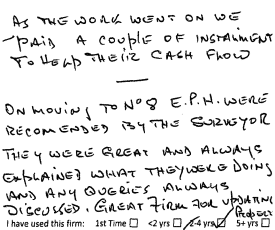 AS THE WORK WENT ON WE
PAID A COUPLE OF INSTALMENT
TO HELP THEIR CASH FLOW
ON MOVING TO No 8 E.P.H. WERE
RECOMENDED BY THE SURVEYOR
THEY WERE GREAT AND ALWAYS
EXPLAINED WHAT THEY WERE DOING
AND ANY QUERIES ALWAYS
DISCUSSED. GREAT FIRM FOR UPDATING
PROPERTY
I have used this firm: 1st Time <2 yrs 2-4 yrs 5+ yrs